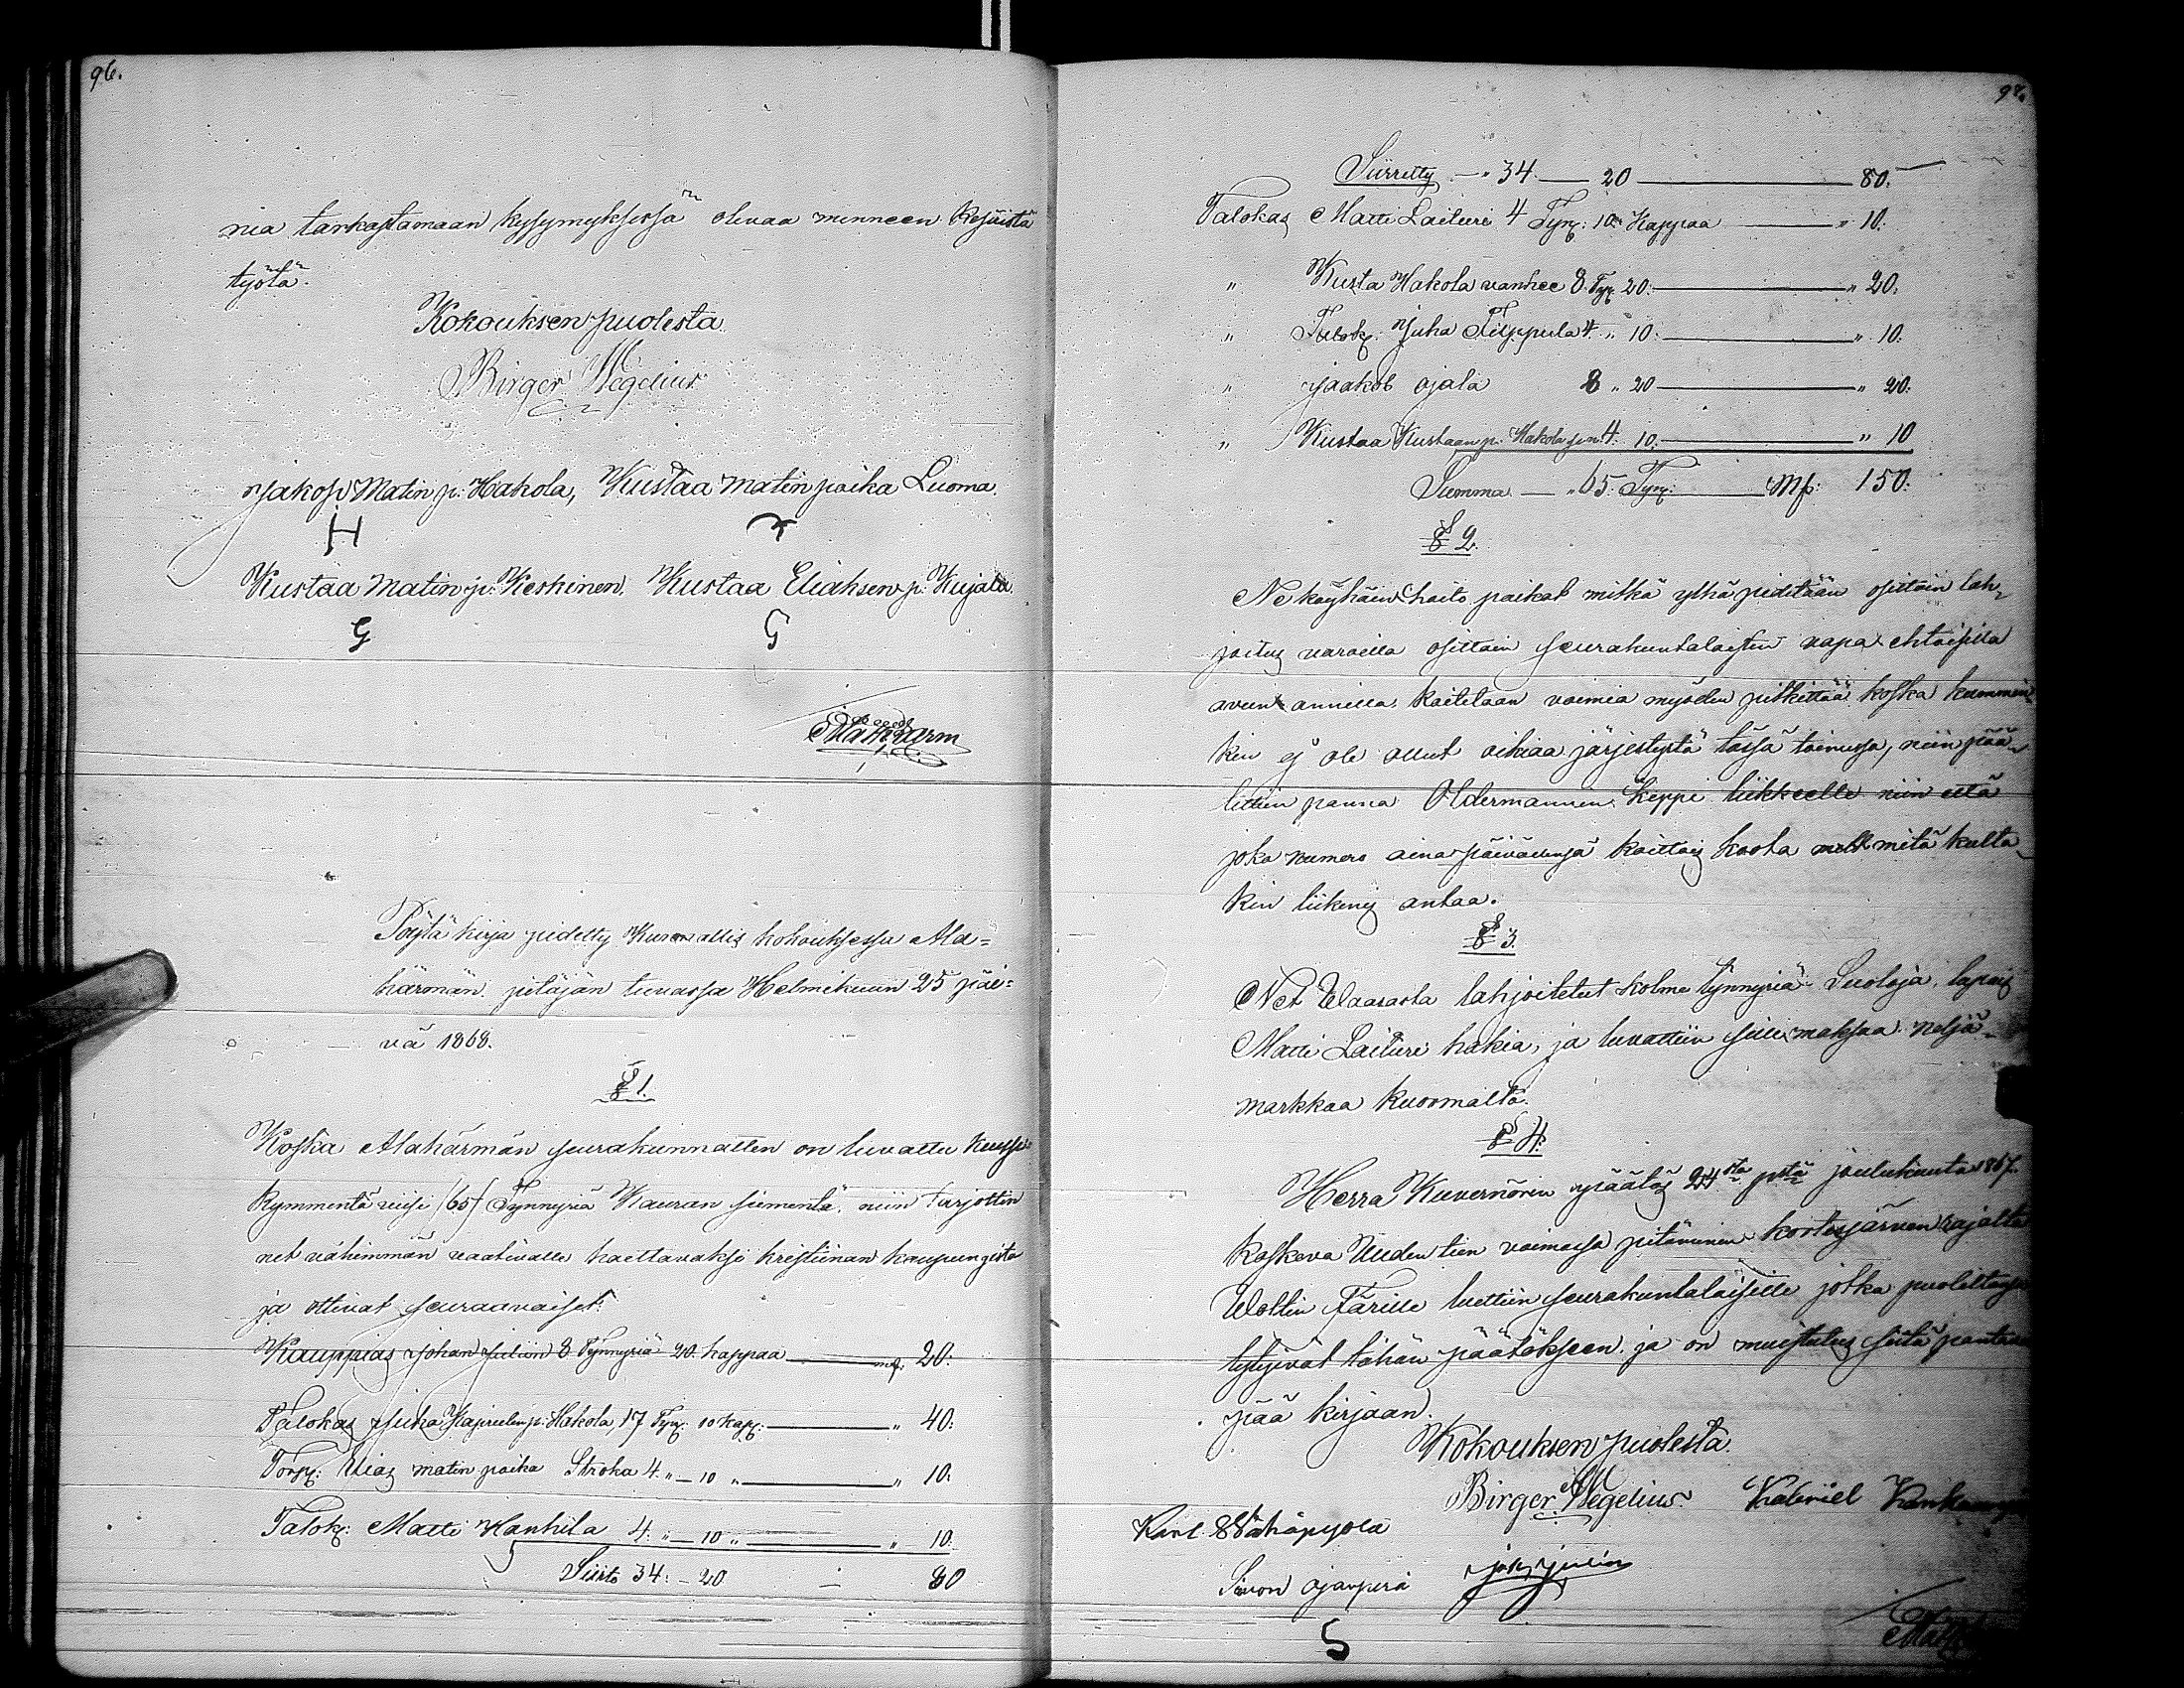 96.
nia tarkastamaan kysymyksesä olevaa menneen kesäistä
työtä.
Kokouksen puolesta
Birger Hegelius
Jakop Matin p: Hakola, Kustaa Matin poika Luoma.
H
Kustaa Matin p: Keskinen. Kustaa Eliaksen p: Kujala.
G G
Pöytä kirja pidetty Kunnallis kokouksessa Ala=
härmän pitäjän tuvassa Helmikuun 25 päi=
vä 1868.
§ 1.
Koska Alahärmän seurakunnallen on luvattu kuusi
kymmentä viisi /65/ Tynnyriä Kauran siementä, niin tarjottin
net vähimmän vaativalle haettavaksi kristiinan kaupungista
ja ottivat seuraavaiset:
Kauppias Johan Julin 8 Tynnyriä 20 kappaa mk. 20:
Talokas Juha p: Hakola, 17 Tyn: 10 kap: " 40:
Torp: Elias Matin poika Stroka 4 " – 10 " " 10:
Talok: Matti Hanhila 4: " – 10 " " 10:
Siirto 34: – 20 – 80
97.
Siirretty – " 34 20 80.
Talokas Matti Laituri 4 Tyn: 10 Kappaa " 10:
" Kusta Hakola vanhee 8 Tyn 20: " 20:
" Talok: Juha Filppula 4 " 10: " 10:
" Jaakob ojala 8 " 20 " 20:
" Kustaa Kustaan p: Hakola 4: 10: " 10
Summa – " 65 Tyn: Mk: 150:
§ 2.
Ne köyhäin hoito paikat mitkä ylhä pidetään osittain lah,
joitus varoilla osittain seurakuntalaisten vapa ehtoisilla
avun annilla, koitetaan voimia myöden pitkittää koska kummin
kin ej ole ollut oikiaa järjestystä tässä toimessa, niin pää
tettiin panna Oldermannin keppi liikkeelle niin että
joka numero aina päivällensä koittais koota mitä kulta
kin liikenis antaa.
§ 3.
Net Waasasta lahjoitetut kolme tynnyriä Suoloja, lupais
Matti Laituri hakia, ja luvattiin siitä maksaa neljä
markkaa kuormalta.
§ 4.
Herra Kuvernörin päätös 24stä pstä joulukuuta 1867.
koskeva Uuden tien voimassa pitäminen kortesjärven rajalta
Woltin Färille luettiin seurakuntalaisille jotka puolittajsi
tytyivät tähän päätökseen ja on muistutus siitä pantava
pää kirjaan.
Kokouksen puolesta
Birger Hegelius Kabriel
Karl Wähäpyola
Simon ojanperä Joh Julin
S